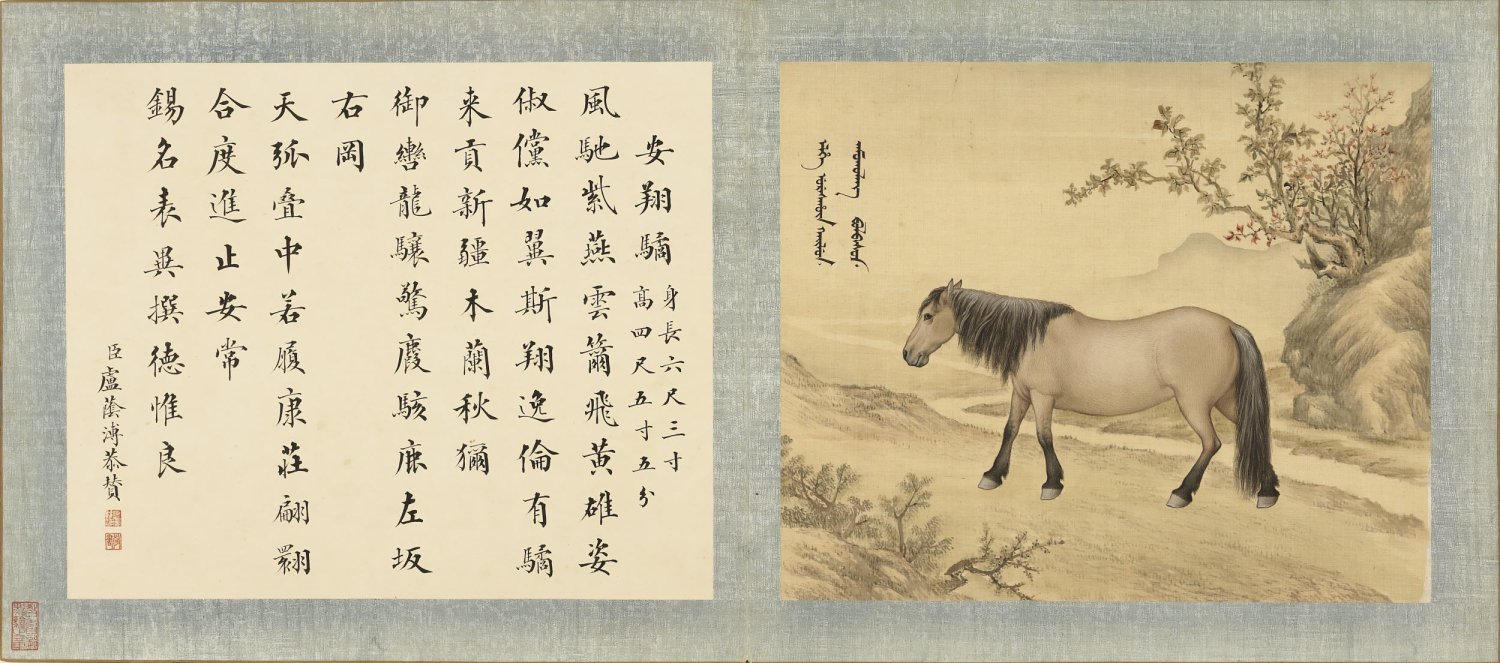 安翔驈
身長六尺三寸
高四尺五寸五分
風馳紫燕雲籋飛黄雄姿
俶儻如翼斯翔逸倫有驈
来貢新疆木蘭秋獮
御轡龍驤驚麚駭麃左坂
右岡
天弧疊中若履康莊翩翾
合度進止安常
錫名表異撰德惟良
臣盧蔭溥恭贊